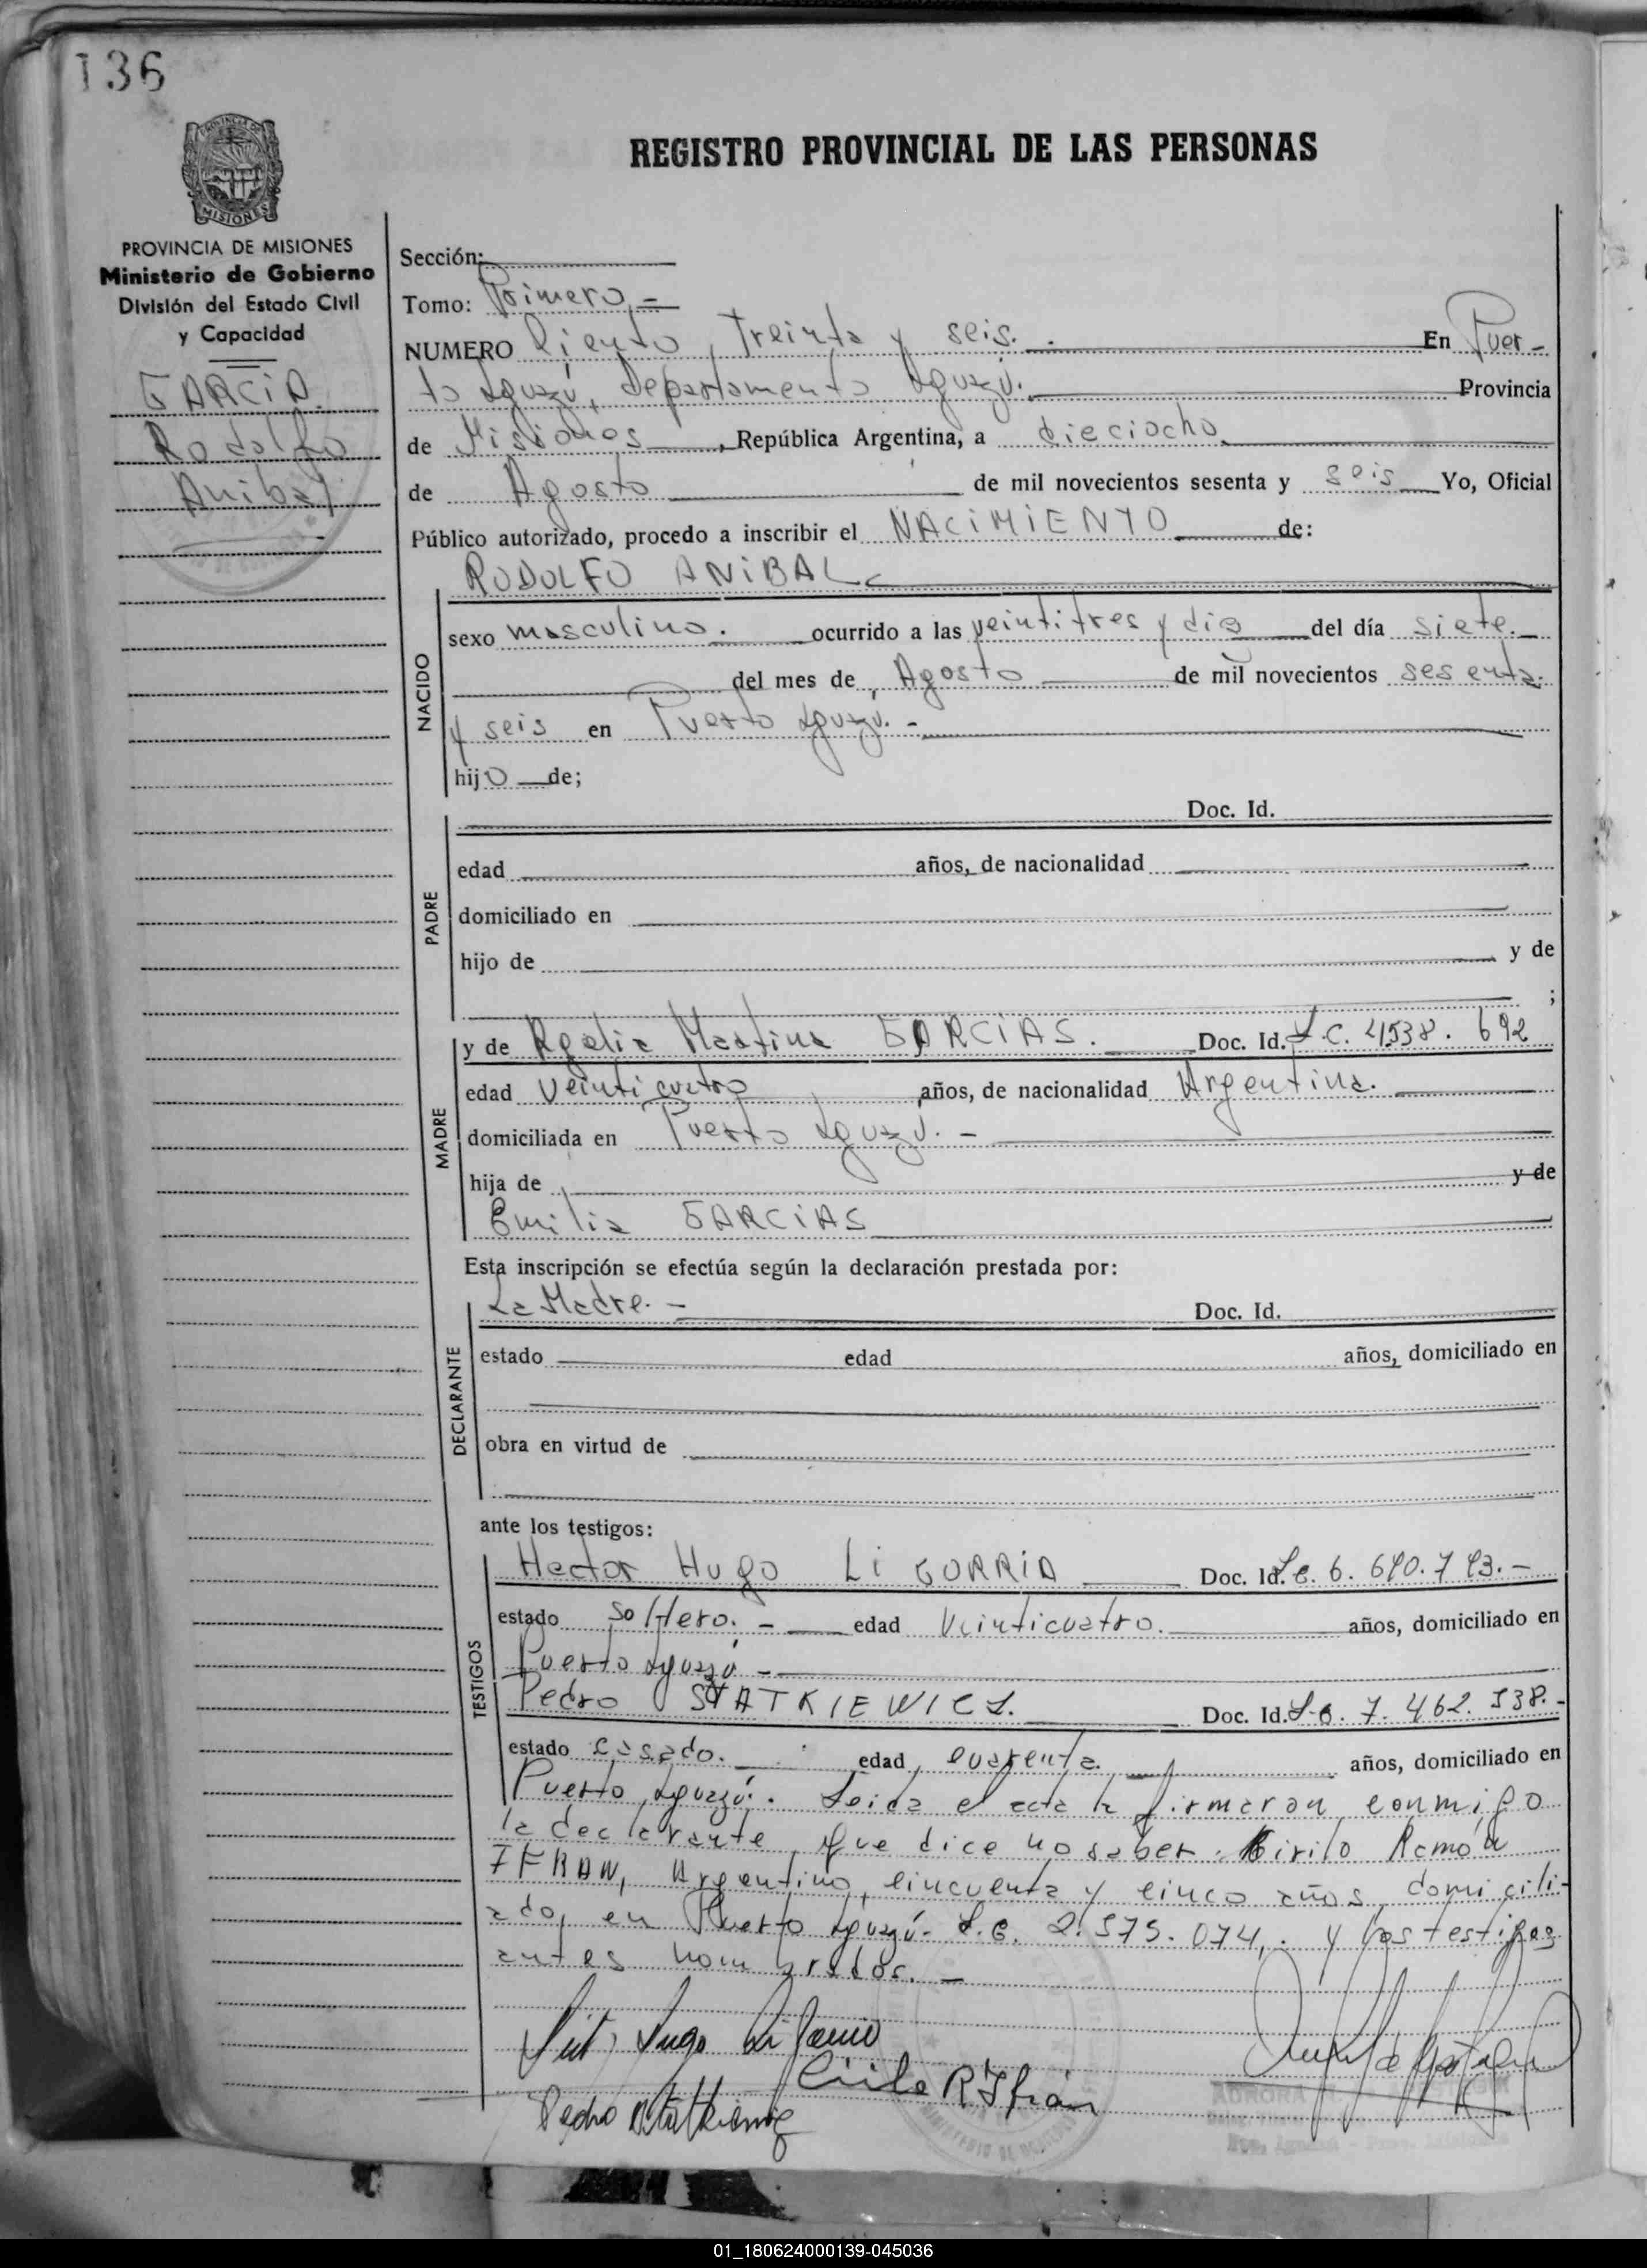 136
REGISTRO PROVINCIAL DE LAS PERSONAS
PROVINCIA DE
MISIONES
PROVINCIA DE MISIONES
Ministerio de Gobierno
División del Estado Civil
y Capacidad
GARCIA
Rodolfo
Anibal
Sección:
Tomo: Primero.-
NUMERO Ciento, treinta y seis. En Puer-
to Iguazú, departamento Iguazú. Provincia
de Misiones, República Argentina, a dieciocho
de Agosto de mil novecientos sesenta y seis Yo, Oficial
Público autorizado, procedo a inscribir el NACIMIENTO de:
RODOLFO ANIBAL
NACIDO
sexo masculino. ocurrido a las veintitres y diez del día siete.
del mes de Agosto de mil novecientos sesenta
y seis en Puerto Iguazú.-
hijo de;
PADRE
Doc. Id.
edad años, de nacionalidad
domiciliado en
hijo de y de
;
MADRE
y de Martina GARCIAS. Doc. Id. L.C. 4.538.692
edad veinticuatro años, de nacionalidad Argentina.
domiciliada en Puerto Iguazú.-
hija de y de
Emilia GARCIAS
Esta inscripción se efectúa según la declaración prestada por:
DECLARANTE
La Madre.- Doc. Id.
estado edad años, domiciliado en
obra en virtud de
ante los testigos:
TESTIGOS
Hector Hugo LiGORRIA Doc. Id.
estado soltero.- edad Veinticuatro. años, domiciliado en
Puerto Iguazú-
Pedro STATKIEWICZ. Doc. Id. 7.462.
estado casado. edad cuarenta. años, domiciliado en
Puerto Iguazú. Leida el acta la firmaron conmigo
la declarante, que dice no saber. Cirilo Ramón
IFRAN, Argentino, cincuenta y cinco años, domicili-
ado, en Puerto Iguazú- 074,. y los testigos
antes nombrados.-
Cirilo R Ifrán
AURORA
01_180624000139-045036